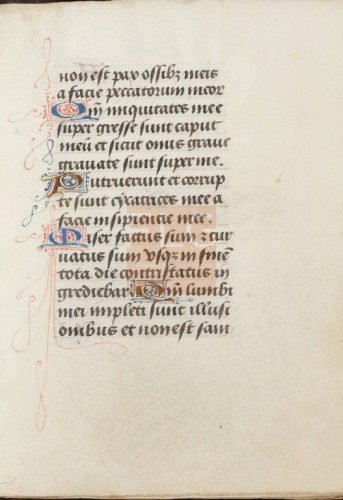 non est pax ossibz meis
a facie peccatorum meor
Qm̃ iniquitates mee
super gresse sunt caput
meũ et sicut onus grave
gravate sunt super me.
Putruerunt et corrup
te sunt cycatrices mee a
facie insipientie mee.
Miser factus sum z cur
uatus sum vsqz in finẽ
tota die contristatus in
grediebar. Qm̃ lumbi
mei impleti sunt illusi
onibus et non est sani